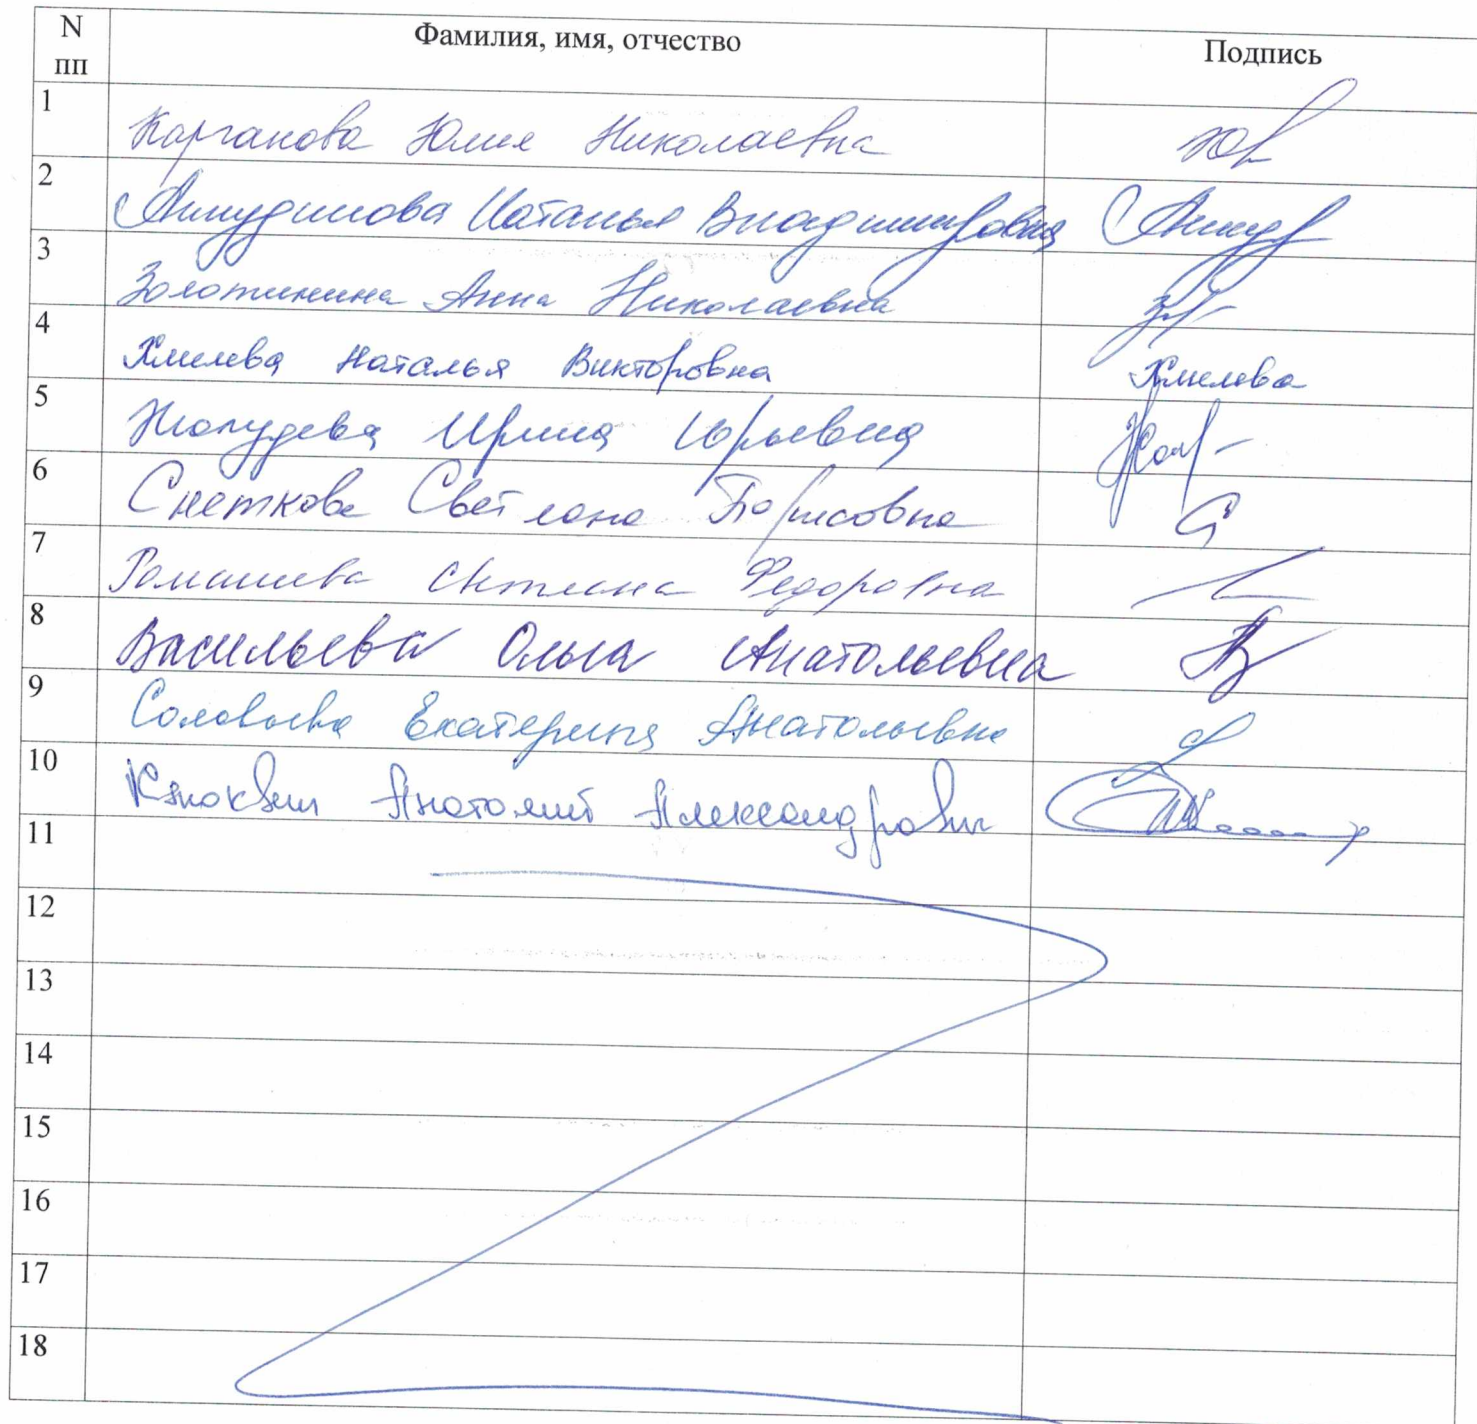 N пп Фамилия, имя, отчество Подпись
1 Карганова Юлия Николаевна
2 Анмудинова Наталья Владимировна
3 Золотинина Анна Николаевна
4 Хмелева Наталья Викторовна Хмелева
5 Жолудева Ирина Юрьевна
6 Снеткова Светлана Борисовна
7 Федоровна
8 Васильева Ольга Анатольевна
9 Соловьева Екатерина Анатольевна
10 Анатолий Александрович
11
12
13
14
15
16
17
18